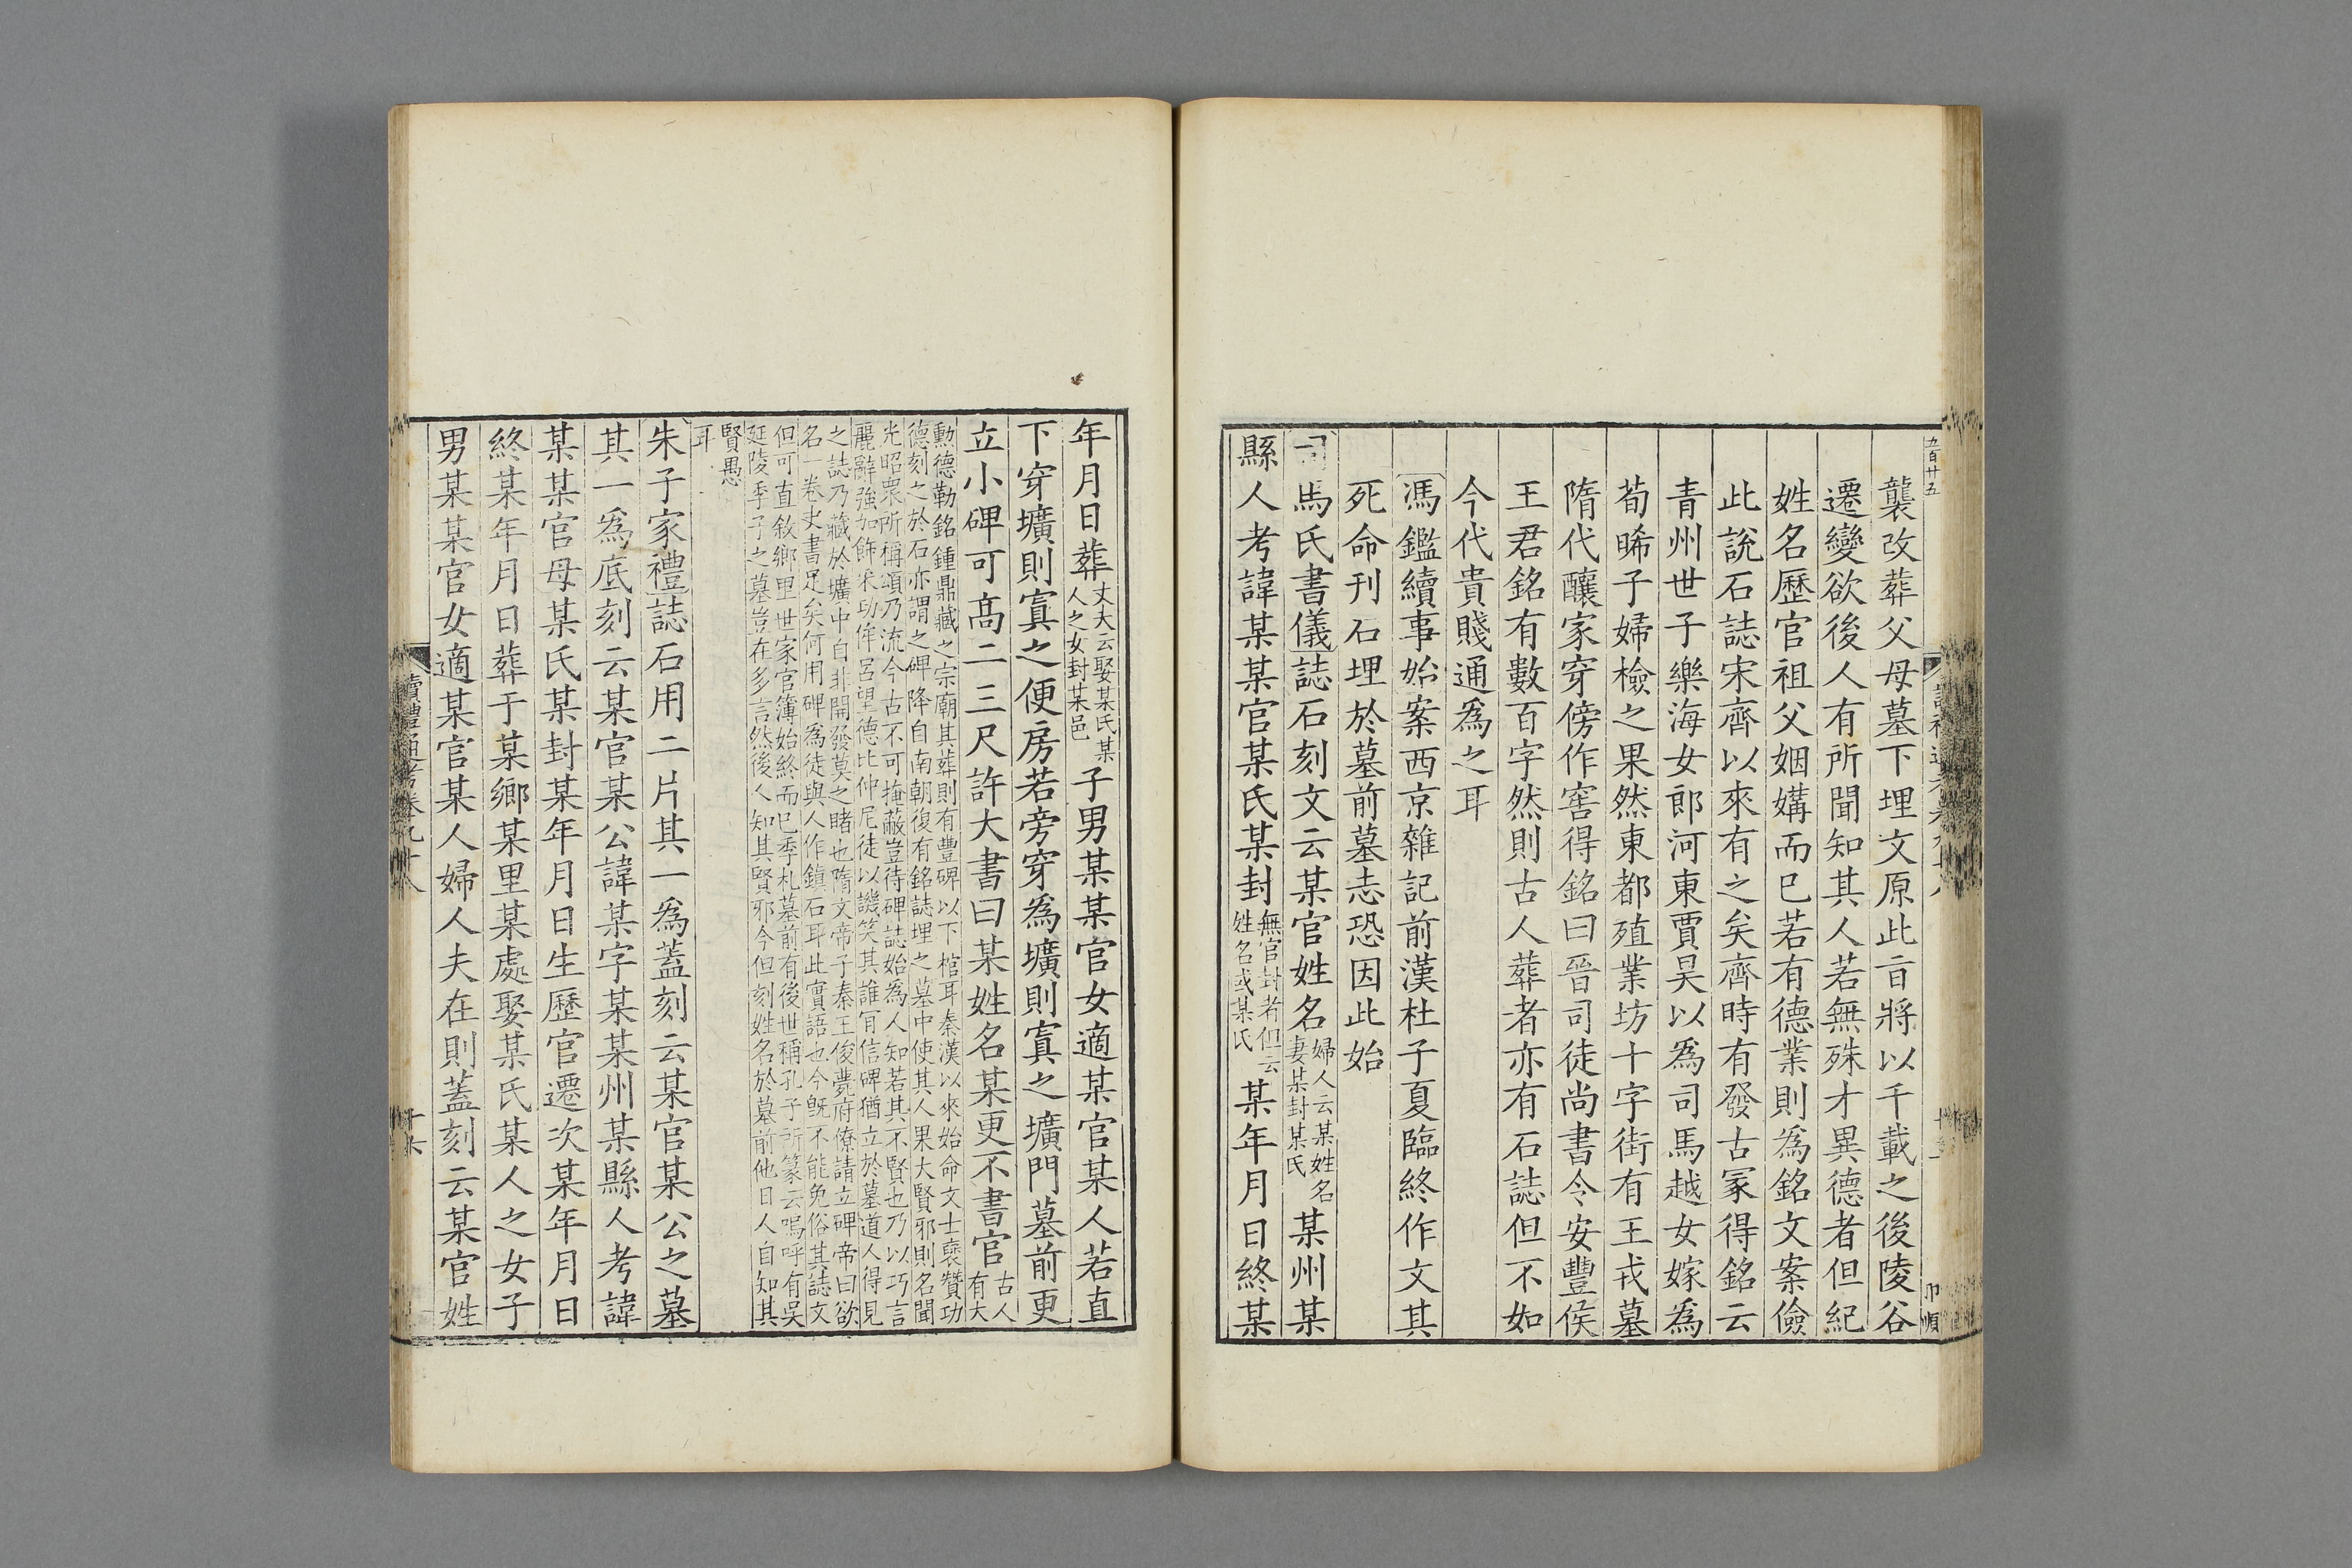 五百廿五
襲改葬父母墓下埋文原此㫖將以千載之後陵谷
遷變欲後人有所聞知其人若無殊才異德者但紀
姓名歷官祖父姻媾而已若有德業則為銘文案儉
此說石誌宋齊以來有之矣齊時有發古冡得銘云
青州世子樂海女郎河東賈昊以為司馬越女嫁為
荀晞子婦檢之果然東都殖業坊十字街有王戎墓
隋代釀家穿傍作窖得銘曰晉司徒尚書令安豐侯
王君銘有數百字然則古人葬者亦有石誌但不如
今代貴賤通為之耳
馮鑑續事始案西京雜記前漢杜子夏臨終作文其
死命刊石埋於墓前墓志恐因此始
司馬氏書儀誌石刻文云某官姓名婦人云某姓名妻某封某氏某州某
縣人考諱某某官某氏某封無官封者但云姓名或某氏某年月日終某
年月日葬丈夫云娶某氏某人之女封某邑子男某某官女適某官某人若直
下穿壙則窴之便房若旁穿為壙則窴之壙門墓前更
立小碑可高二三尺許大書曰某姓名某更不書官古人有大
勲德勒銘鍾鼎藏之宗廟其葬則有豐碑以下棺耳秦漢以來始命文士襃贊功
德刻之於石亦謂之碑降自南朝復有銘誌埋之墓中使其人果大賢邪則名聞
光昭衆所稱頌乃流今古不可掩蔽豈待碑誌始為人知若其不賢也乃以巧言
麗辭強加飾采功侔呂望德比仲尼徒以譏笑其誰肎信碑猶立於墓道人得見
之誌乃藏於壙中自非開發莫之睹也隋文帝子秦王俊薨府僚請立碑帝曰欲
名一卷史書足矣何用碑為徒與人作鎮石耳此實語也今旣不能免俗其誌文
但可直敘鄉里世家官簿始終而已季札墓前有後世稱孔子所篆云嗚呼有吳
延陵季子之墓豈在多言然後人知其賢邪今但刻姓名於墓前他日人自知其
賢愚
耳
朱子家禮誌石用二片其一為蓋刻云某官某公之墓
其一為底刻云某官某公諱某字某某州某縣人考諱
某某官母某氏某封某年月日生歷官遷次某年月日
終某年月日葬于某鄉某里某處娶某氏某人之女子
男某某官女適某官某人婦人夫在則蓋刻云某官姓
讀禮通考卷九十八